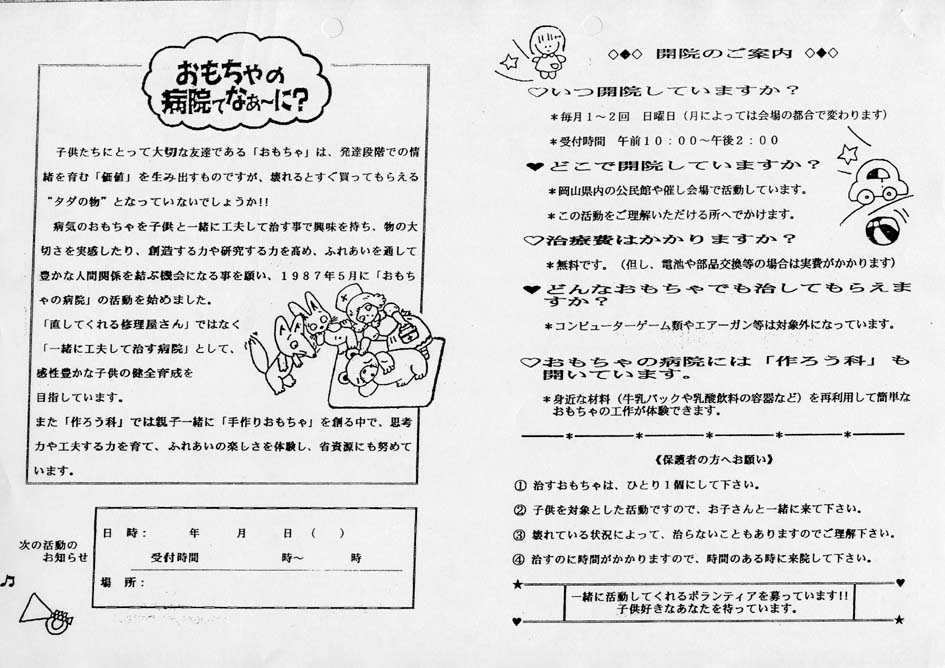 おもちゃの
病院てなあ〜に?
子供たちにとって大切な友達である「おもちゃ」は、発達段階での情
緒を育む「価値」を生み出すものですが、壊れるとすぐ買ってもらえる
“タダの物”となっていないでしょうか!!
病気のおもちゃを子供と一緒に工夫して治す事で興味を持ち、物の大
切さを実感したり、創造する力や研究する力を高め、ふれあいを通して
豊かな人間関係を結ぶ機会になる事を願い、1987年5月に「おもち
ゃの病院」の活動を始めました。
「直してくれる修理屋さん」ではなく
「一緒に工夫して治す病院」として、
感性豊かな子供の健全育成を
目指しています。
また「作ろう科」では親子一緒に「手作りおもちゃ」を創る中で、思考
力や工夫する力を育て、ふれあいの楽しさを体験し、省資源にも努めて
います。
次の活動の
お知らせ
日 時: 年 月 日 ( )
受付時間 時〜 時
場 所:
◇◆◇ 開院のご案内 ◇◆◇
♡いつ開院していますか?
*毎月1〜2回 日曜日(月によっては会場の都合で変わります)
*受付時間 午前10:00〜午後2:00
♥どこで開院していますか?
*岡山県内の公民館や催し会場で活動しています。
*この活動をご理解いただける所へでかけます。
♡治療費はかかりますか?
*無料です。(但し、電池や部品交換等の場合は実費がかかります)
♥どんなおもちゃでも治してもらえま
すか?
*コンピューターゲーム類やエアーガン等は対象外になっています。
♡おもちゃの病院には「作ろう科」も
開いています。
*身近な材料(牛乳パックや乳酸飲料の容器など)を再利用して簡単な
おもちゃの工作が体験できます。
《保護者の方へお願い》
① 治すおもちゃは、ひとり1個にして下さい。
② 子供を対象とした活動ですので、お子さんと一緒に来て下さい。
③ 壊れている状況によって、治らないこともありますのでご理解下さい。
④ 治すのに時間がかかりますので、時間のある時に来院して下さい。
一緒に活動してくれるボランティアを募っています!!
子供好きなあなたを待っています。